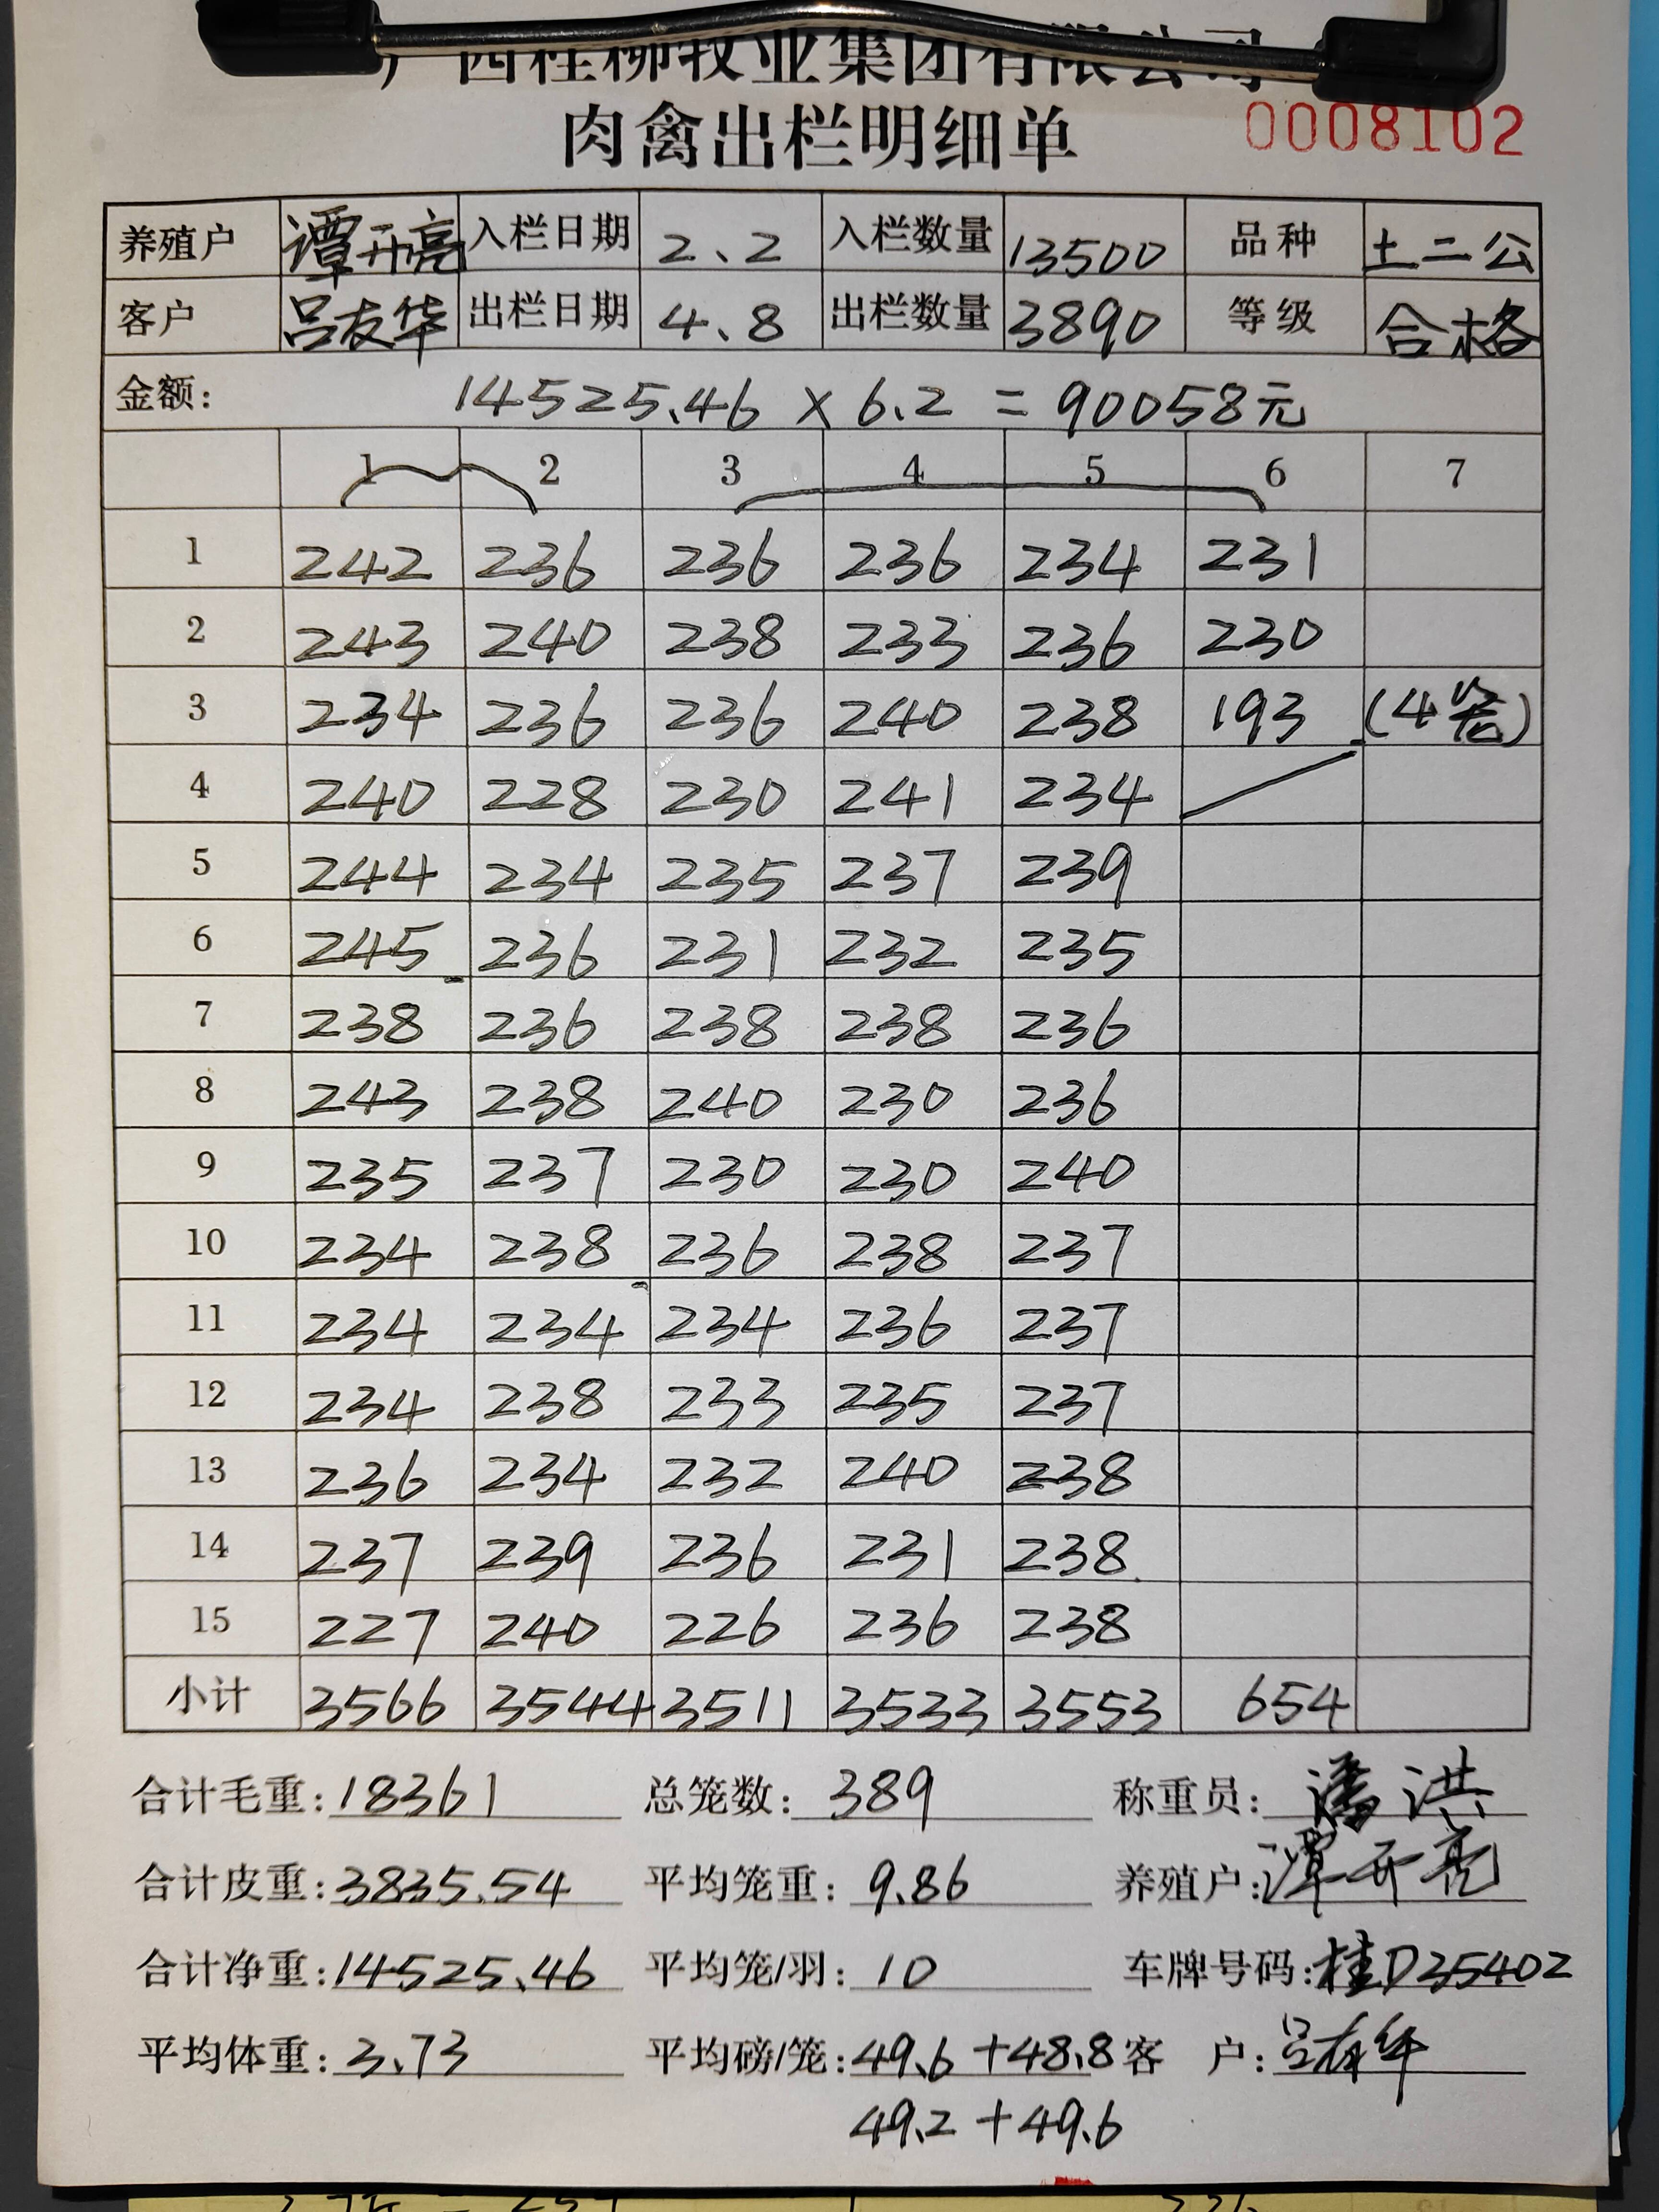 广西桂柳牧业集团有限公司
肉禽出栏明细单 0008102
养殖户 谭开亮 入栏日期 2、2 入栏数量 13500 品种 土二公
客户 吕友华 出栏日期 4、8 出栏数量 3890 等级 合格
金额: 14525.46 × 6.2 = 90058元
1 2 3 4 5 6 7
1 242 236 236 236 234 231
2 243 240 238 233 236 230
3 234 236 236 240 238 193 (4笼)
4 240 228 230 241 234
5 244 234 235 237 239
6 245 236 231 232 235
7 238 236 238 238 236
8 243 238 240 230 236
9 235 237 230 230 240
10 234 238 236 238 237
11 234 234 234 236 237
12 234 238 233 235 237
13 236 234 232 240 238
14 237 239 236 231 238
15 227 240 226 236 238
小计 3566 3544 3511 3533 3553 654
合计毛重: 18361 总笼数: 389 称重员: 潘洪
合计皮重: 3835.54 平均笼重: 9.86 养殖户: 谭开亮
合计净重: 14525.46 平均笼/羽: 10 车牌号码: 桂D35402
平均体重: 3.73 平均磅/笼: 49.6 + 48.8 客 户: 吕友华
49.2 + 49.6